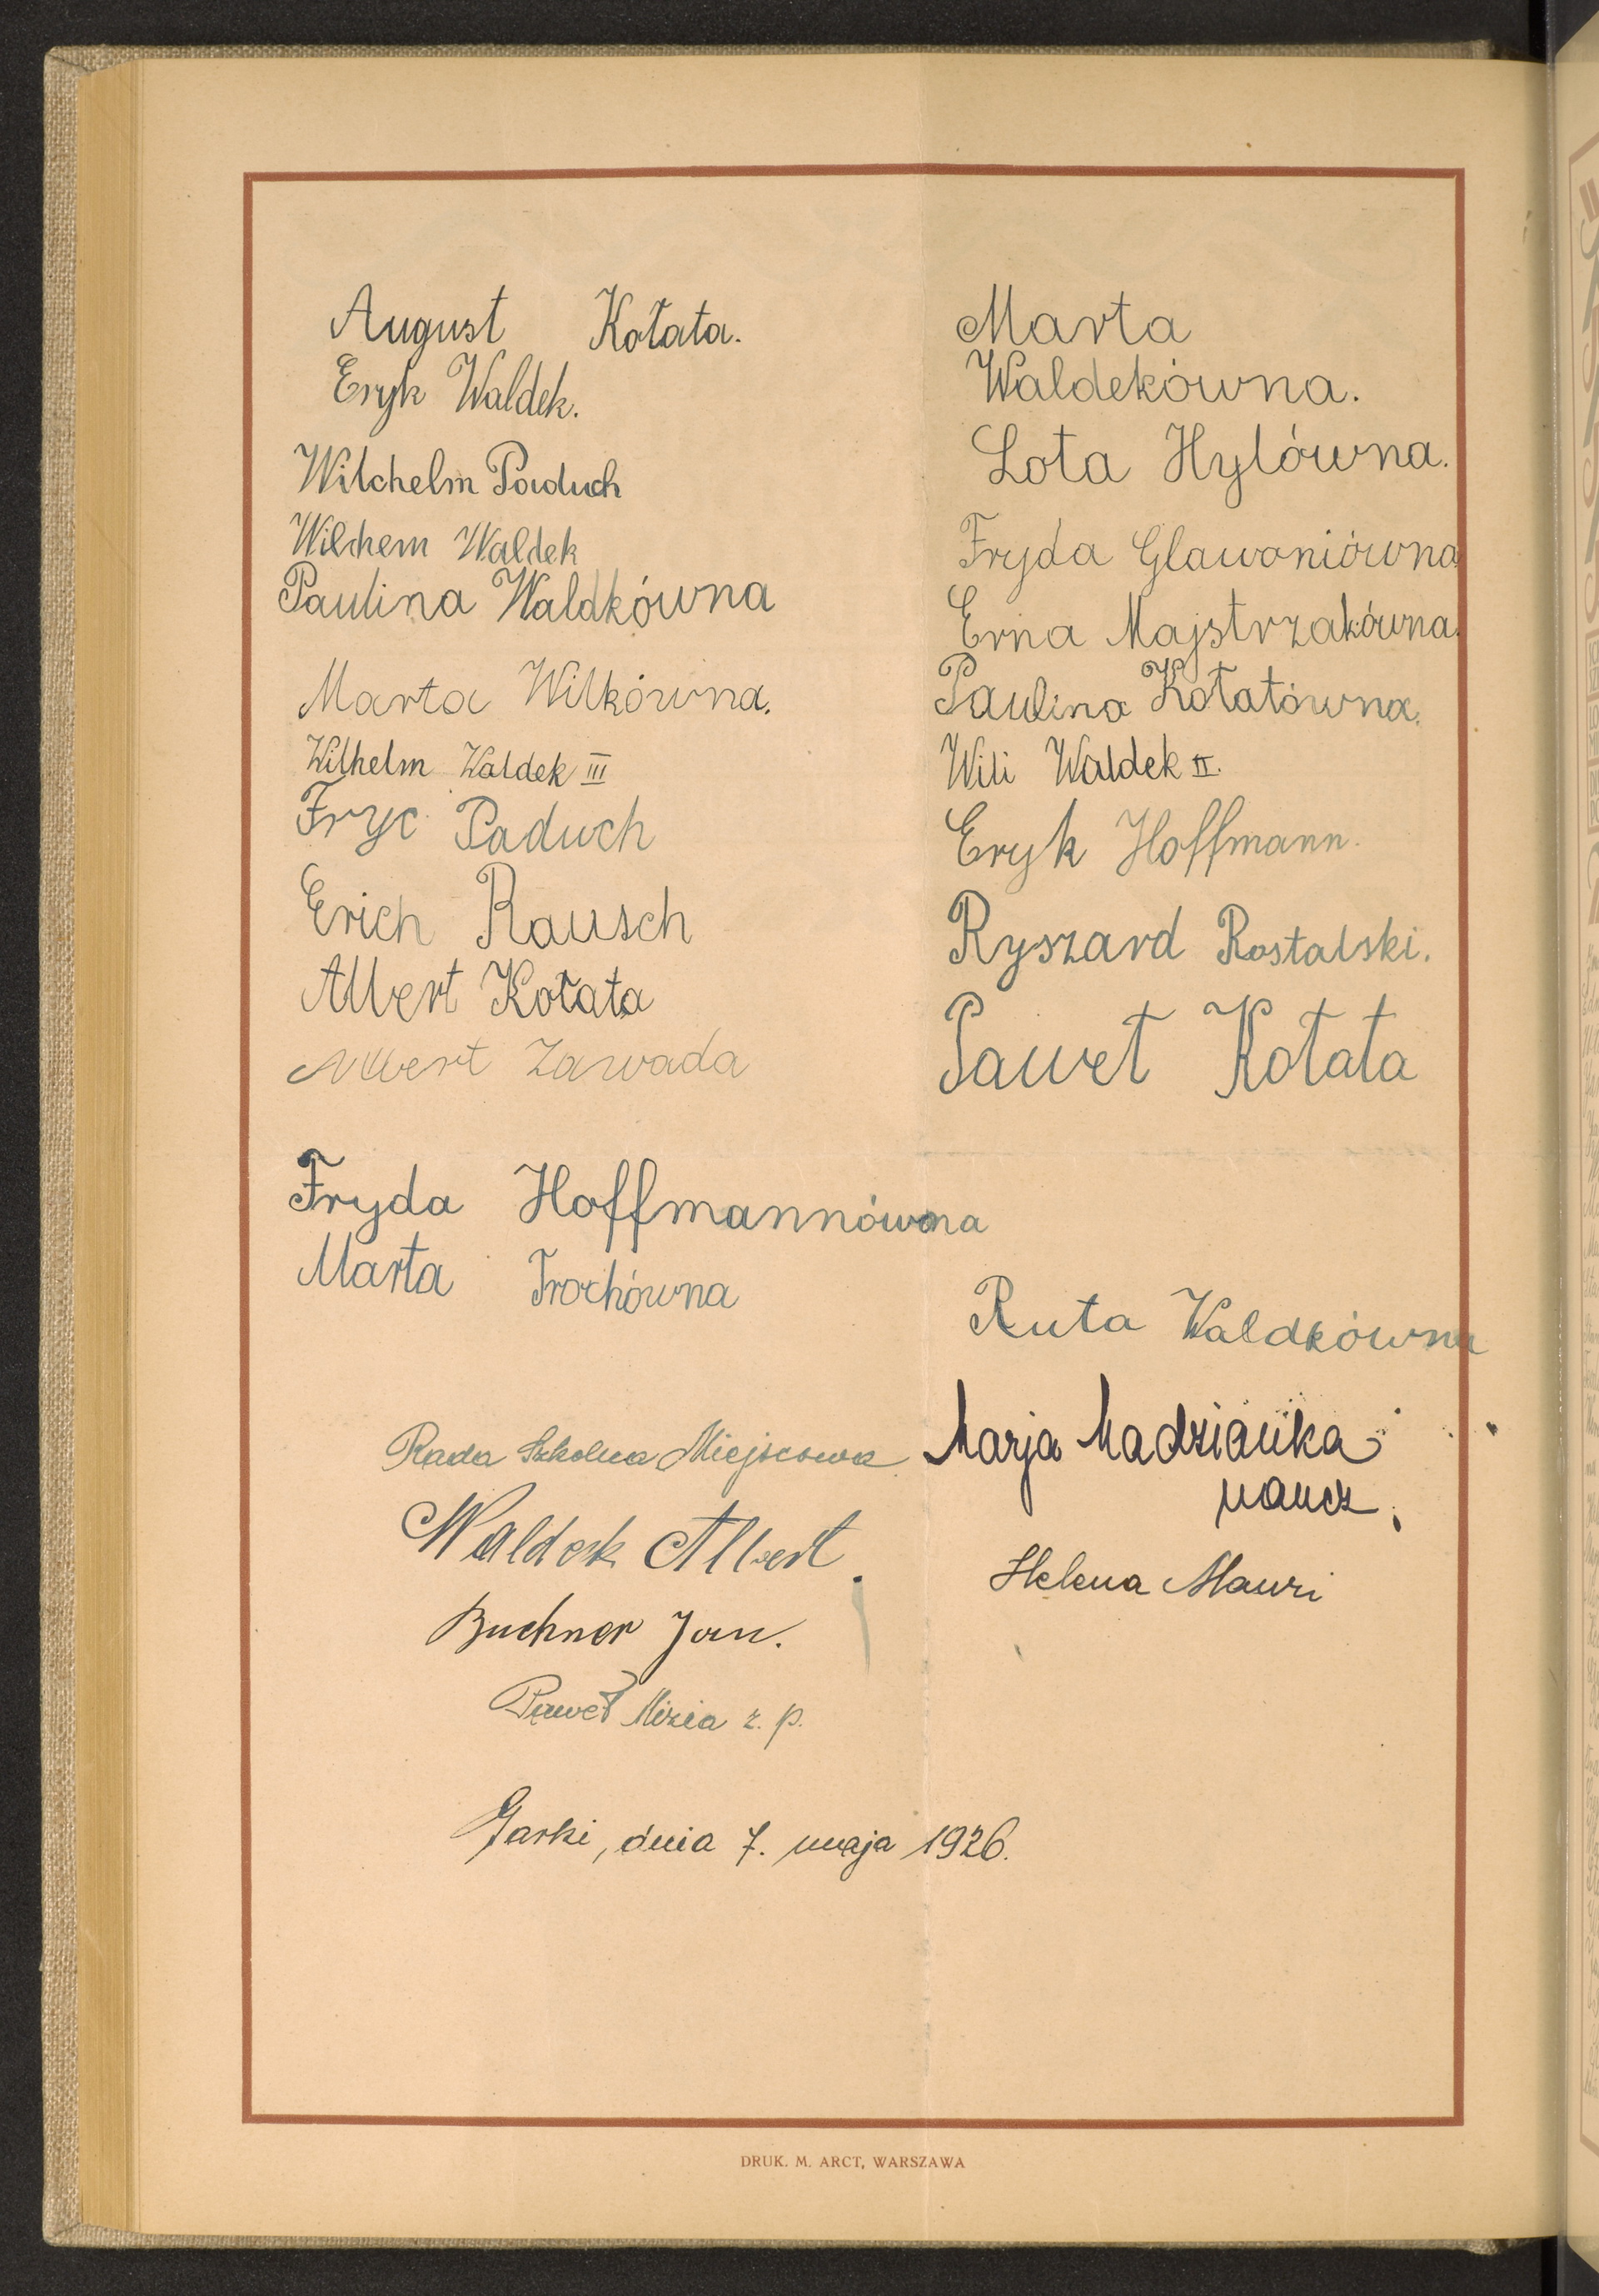 August Kołata.
Eryk Waldek.
Wilchelm Paduch
Wilchem Waldek
Paulina Waldkówna
Marta Wilkówna.
Wilhelm Waldek III
Fryc Paduch
Erich Rausch
Albert Kołata
Albert Zawada
Fryda Hoffmannówna
Marta Trochówna
Rada Szkolna Miejscowa
Waldek Albert.
Buchner Jan.
Paweł Mizia z. p.
Marta
Waldekówna.
Lota Hylówna.
Fryda Glawoniówna
Erna Majstrzakówna.
Paulina Kołatówna.
Wili Waldek II.
Eryk Hoffmann.
Ryszard Rostalski.
Paweł Kołata
Ruta Waldkówna
Marja Madzianka
naucz.
Helena Mauri
Jaski, dnia 7. maja 1926.
DRUK. M. ARCT, WARSZAWA